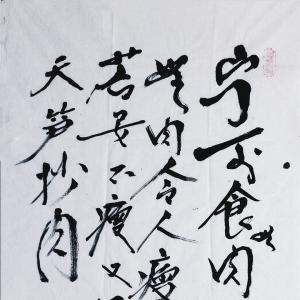 宁可食无肉
无肉令人瘦
若要不瘦又
天笋炒肉